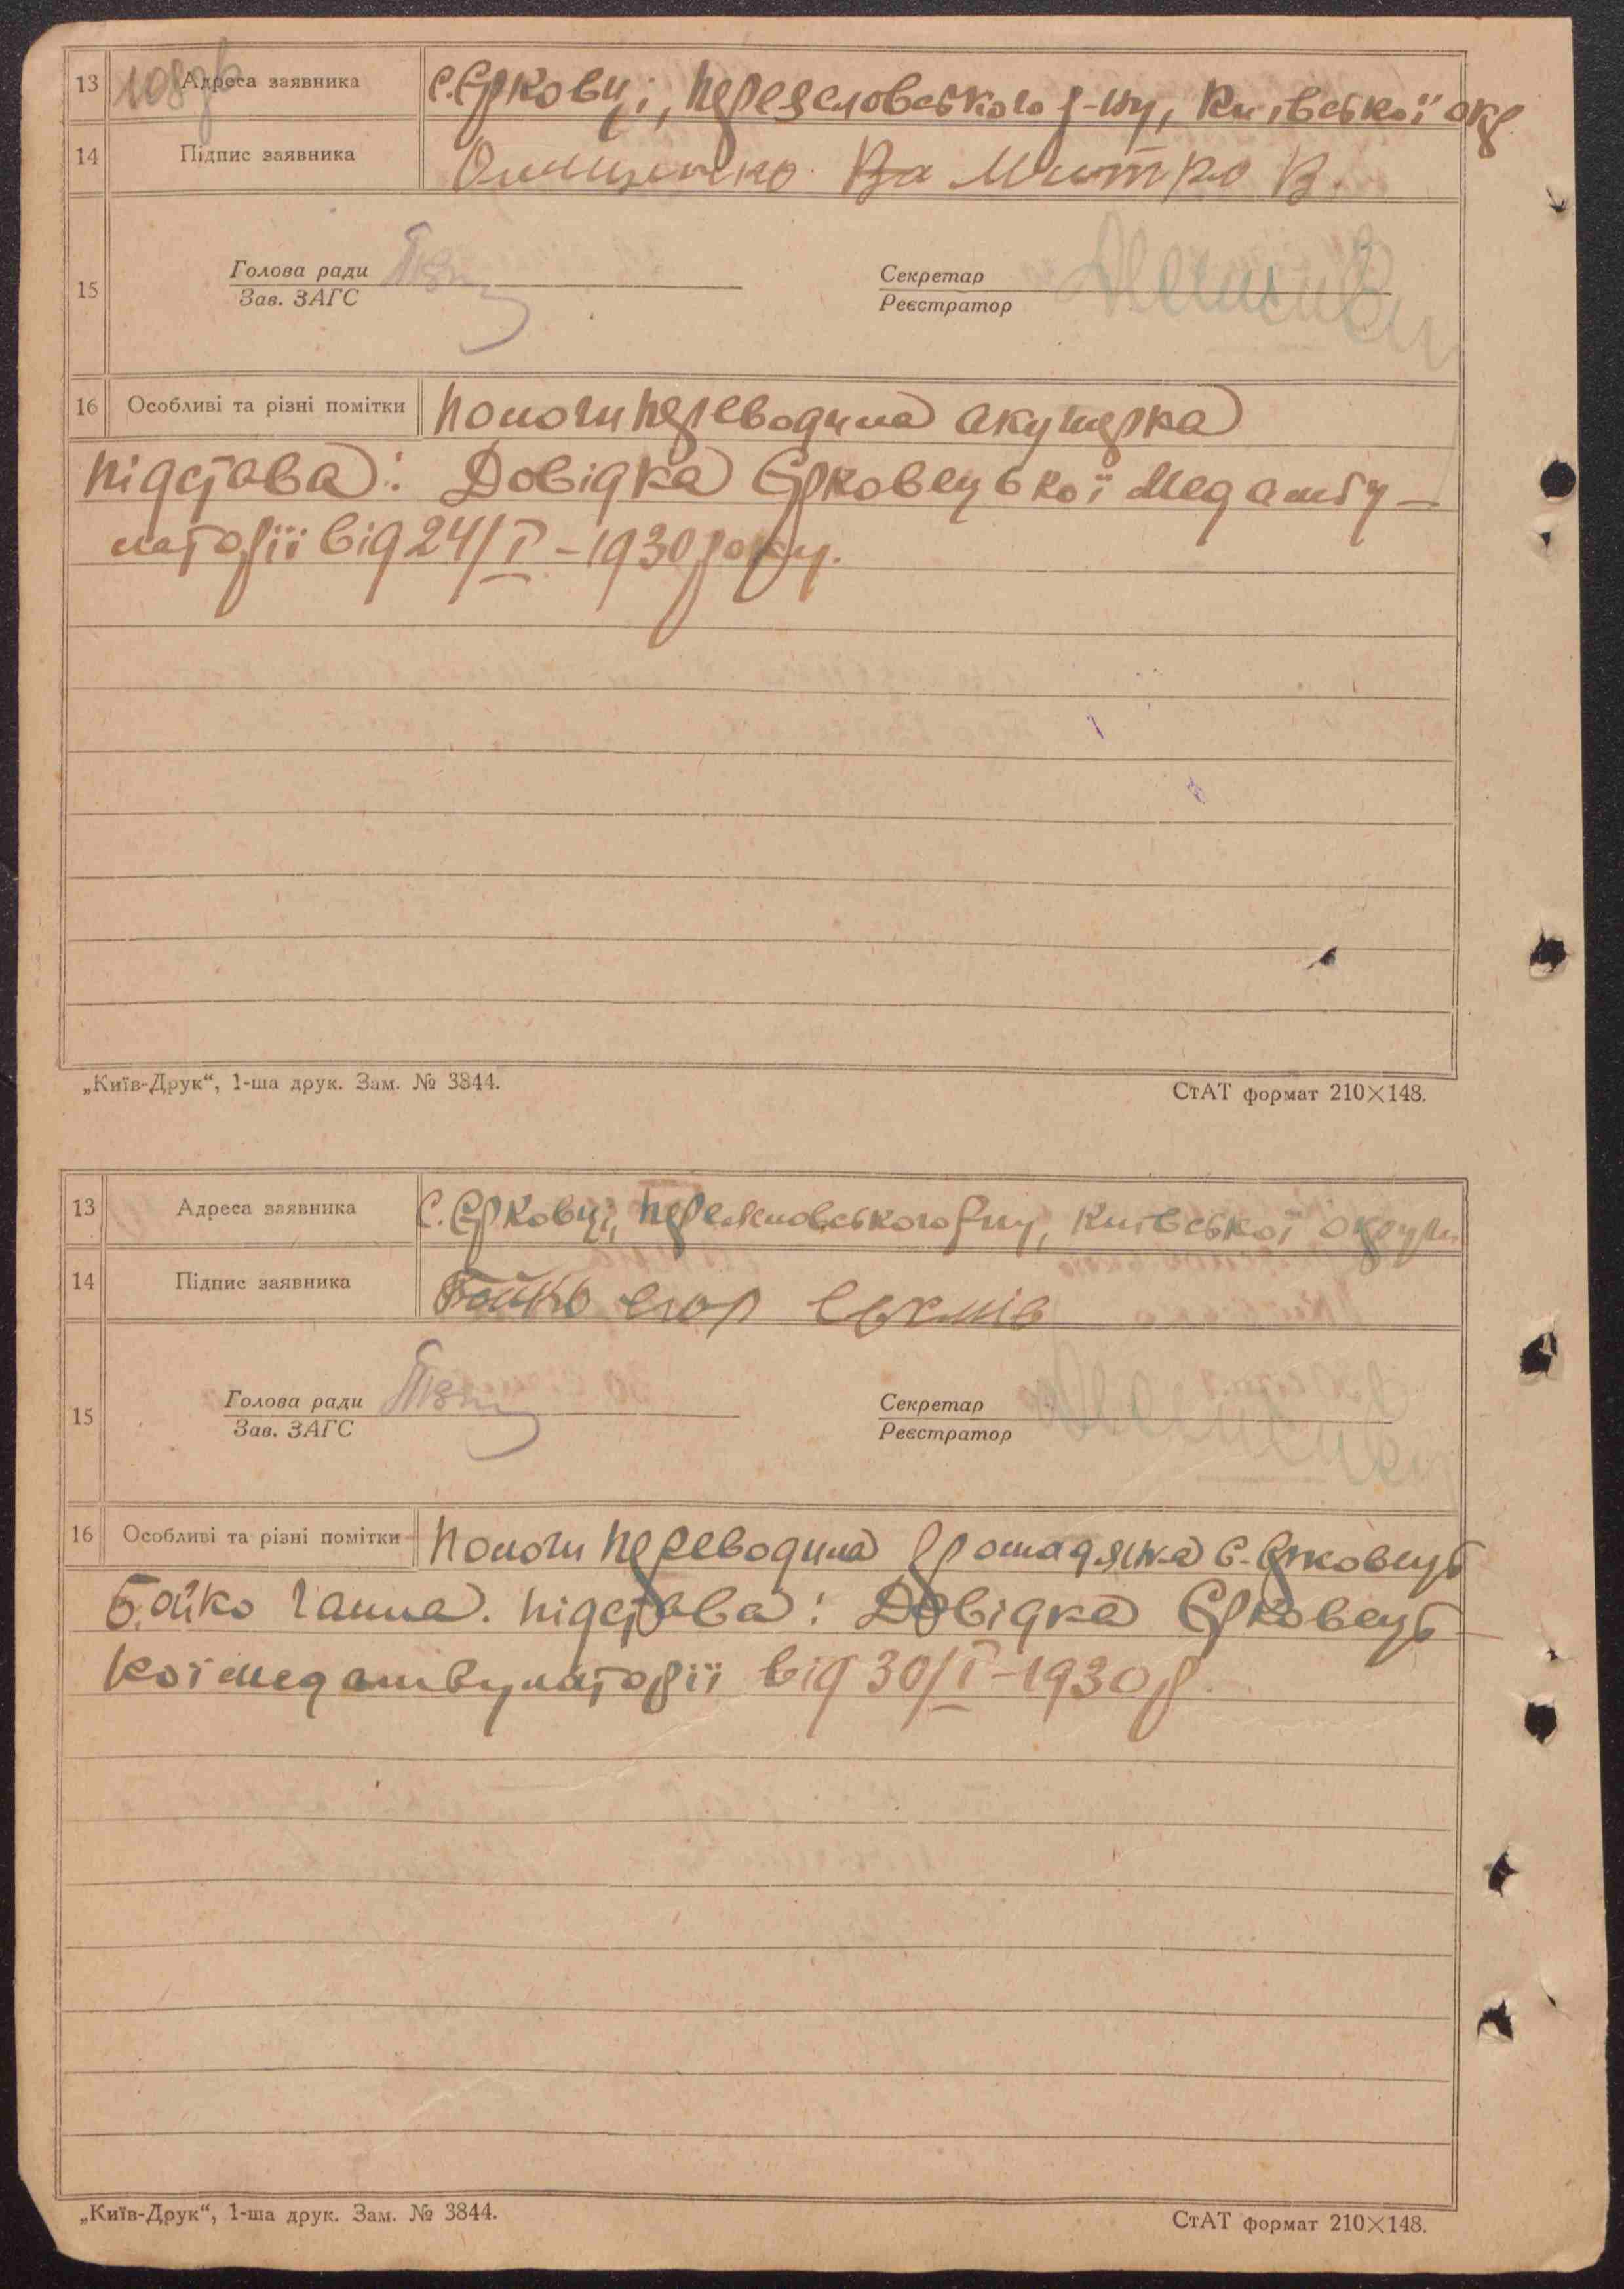 13 Адреса заявника с. Єрковці, Переяславського р-ну, Київської окр
14 Підпис заявника Онищенко Митро В.
Голова ради Секретар
15
Зав. ЗАГС Реєстратор
16 Особливі та різні помітки Пологи переводила акушерка
підстава: Довідка Єрковецької Медамбу-
латорії від 24/I – 1930 року.
„Київ-Друк“, 1-ша друк. Зам. № 3844. СтАТ формат 210×148.
13 Адреса заявника с. Єрковці, Переяславського р-ну, Київської округи
14 Підпис заявника Бойко
Голова ради Секретар
15
Зав. ЗАГС Реєстратор
16 Особливі та різні помітки Пологи переводила громадянка с. Єрковець
Бойко Ганна. підстава: Довідка Єрковець-
кої медамбулаторії від 30/I – 1930 р.
„Київ-Друк“, 1-ша друк. Зам. № 3844. СтАТ формат 210×148.